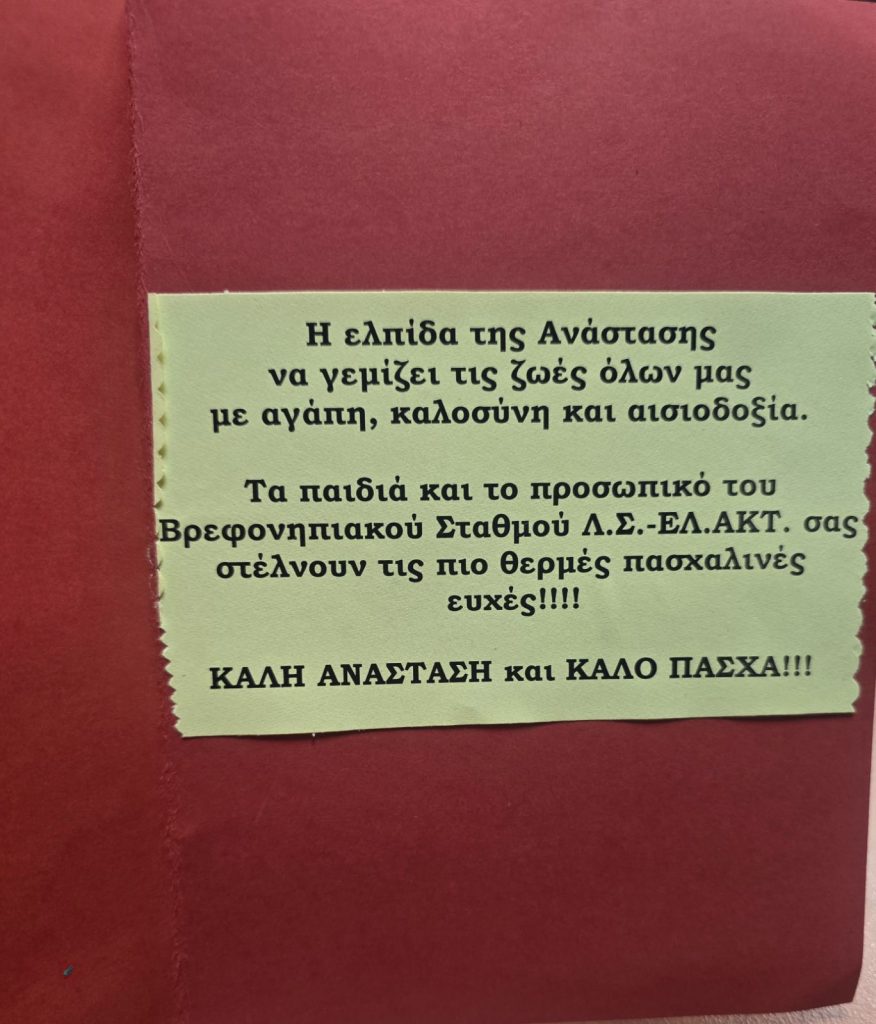 Η ελπίδα της Ανάστασης
να γεμίζει τις ζωές όλων μας
με αγάπη, καλοσύνη και αισιοδοξία.
Τα παιδιά και το προσωπικό του
Βρεφονηπιακού Σταθμού Λ.Σ.-ΕΛ.ΑΚΤ. σας
στέλνουν τις πιο θερμές πασχαλινές
ευχές!!!!
ΚΑΛΗ ΑΝΑΣΤΑΣΗ και ΚΑΛΟ ΠΑΣΧΑ!!!